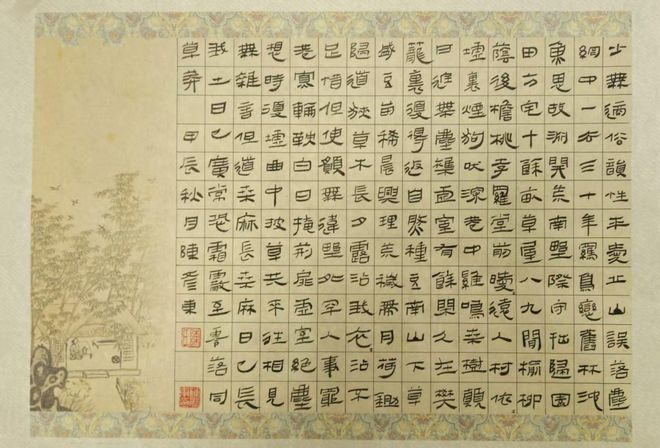 少無適俗韻性本愛丘山誤落塵
網中一去三十年羈鳥戀舊林池
魚思故淵開荒南野際守拙歸園
田方宅十餘畝草屋八九間榆柳
蔭後檐桃李羅堂前曖〻遠人村依〻
墟裏煙狗吠深巷中雞鳴桑樹顛
戶庭無塵雜虛室有餘閒久在樊
籠裏復得返自然種豆南山下草
盛豆苗稀晨興理荒穢帶月荷鋤
歸道狹草木長夕露沾我衣〻沾不
足惜但使願無違野外罕人事
巷寡輪鞅白日掩荊扉虛室絕塵
想時復墟曲中披草共來往相見
無雜言但道桑麻長桑麻日已長
我土日已廣常恐霜霰至零落同
草莽 甲辰秋月陳彥東